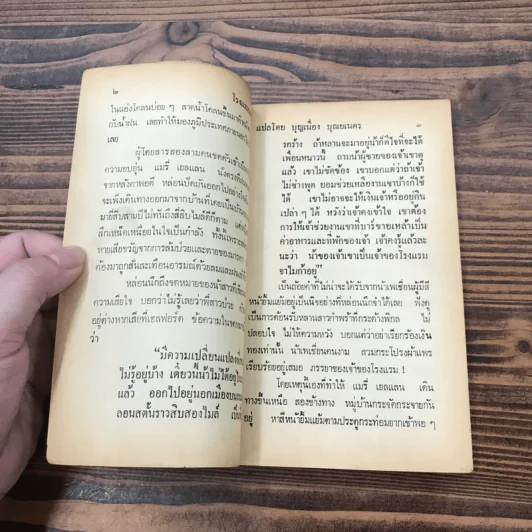 ๒
ในแอ่งโคลนบ่อย ๆ สาดน้ำโคลนขึ้นมา
กับน้ำฝน เลยทำให้มองภูมิประเทศภายนอก
เลย
ผู้โดยสารสองสามคนขดตัวเข้า
ความอบอุ่น แมรี่ เยลแลน นั่งตรง
จากหลังคาพอดี หล่อนบีดมันออกไปอย่าง
จะเพิ่งเดินทางออกมาจากบ้านที่เคยเป็นบ้าน
มายี่สิบสามปีไม่ทันถึงสี่สิบไมล์ดีก็ตาม
สึกเหน็ดเหนื่อยในใจเป็นกำลัง ทั้งนี้เพราะ
หายเสียขวัญจากการล้มป่วยและตายของมารดา
ต้องมาถูกสั่นสะเทือนอารมณ์ด้วยลมและฝน
หล่อนนึกถึงจดหมายของน้าสาวที่
ความเสียใจ บอกว่าไม่รู้เลยว่าพี่สาวป่วย
อยู่ต่างหากเสียที่เฮลฟอร์ด ข้อความใน
ว่า
“มีความเปลี่ยนแปลง
ไม่รู้อยู่บ้าง เดี๋ยวนี้น้าไม่ได้อยู่ใน
แล้ว ออกไปอยู่นอกเมืองบน
ลอนสตันราวสิบสองไมล์
แปลโดย บุญเนื่อง บุณยเนตร ๓
รกร้าง ถ้าหลานจะมาอยู่น้าก็ดีใจที่จะได้
เพื่อนหนาวนี้ ถามน้าผู้ชายของเจ้าเขาดู
แล้ว เขาไม่ขัดข้อง เขาบอกแต่ว่าถ้าเจ้า
ไม่ช่างพูด ยอมช่วยเหลืองานเขาบ้างก็ใช้
ได้ เขาไม่อาจจะให้เงินเจ้าหรืออยู่กิน
เปล่า ๆ ได้ หวังว่าเจ้าคงเข้าใจ เขาต้อง
การให้เจ้าช่วยงานเขาที่บาร์ขายเหล้าเป็น
ค่าอาหารและที่พักของเจ้า เจ้าคงรู้แล้วละ
นะว่า น้าของเจ้าเขาเป็นเจ้าของโรงแรม
จาไมก้าอยู่”
เป็นถ้อยคำที่ไม่น่าจะได้รับจากน้าเพเชียนผู้มีสี
หน้ายิ้มแย้มอยู่เป็นนิจอย่างที่หล่อนนึกจำได้เลย ฟังดู
เป็นการต้อนรับหลานสาวกำพร้าที่กระด้างพิกล ไม่
ปลอบใจ ไม่ให้ความหวัง บอกแต่ว่าอย่าเรียกร้องเงิน
ทองเท่านั้น น้าเพเชียนคนงาม สวมกระโปรงผ้าแพร
เรียบร้อยอยู่เสมอ ภรรยาของเจ้าของโรงแรม !
โดยเหตุนี้เองที่ทำให้ แมรี่ เยลแลน เดิน
ทางขึ้นเหนือ สองข้างทาง หมู่บ้านกระจัดกระจายกัน
อยู่ หาสีหน้ายิ้มแย้มตามประตูกระท่อมยากเข้าพอ ๆ